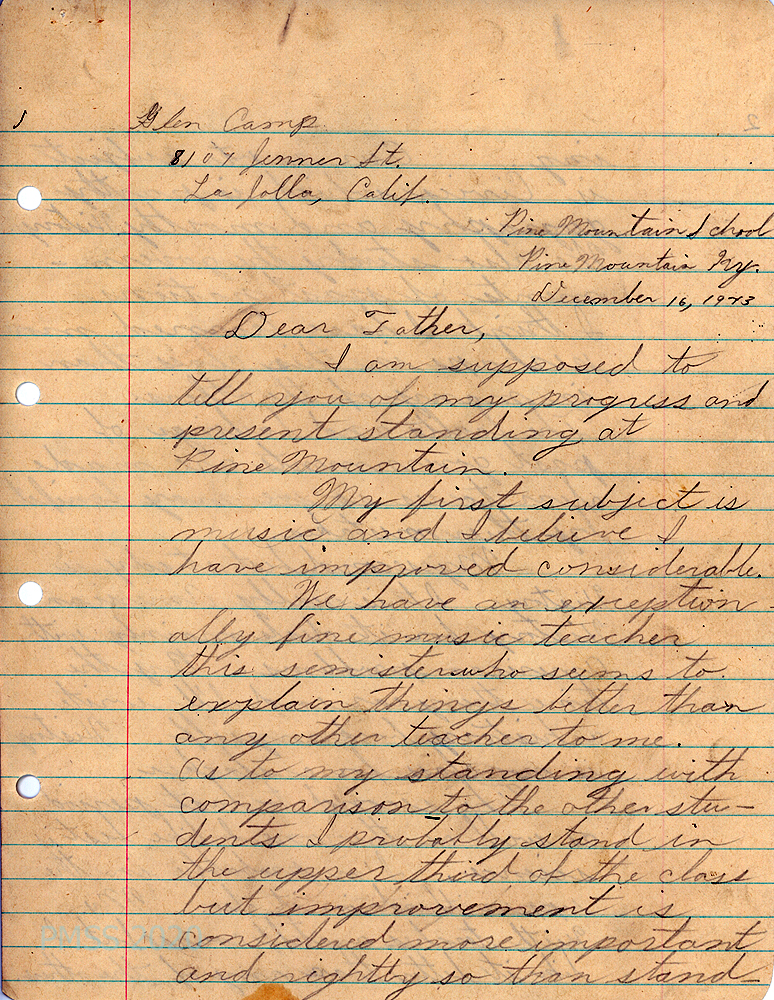 1
Glen Camp
8107 Jenner St.
La Jolla, Calif.
Pine Mountain School
Pine Mountain Ky.
December 16, 1943
Dear Father,
I am supposed to
tell you of my progress and
present standing at
Pine Mountain.
My first subject is
music and I believe I
have improved considerable.
We have an exception
ally fine music teacher
this semister who seems to
explain things better than
any other teacher to me.
As to my standing with
comparison to the other stu-
dents I probably stand in
the upper third of the class
but improvement is
considered more important
and rightly so than stand-
PMSS 2020